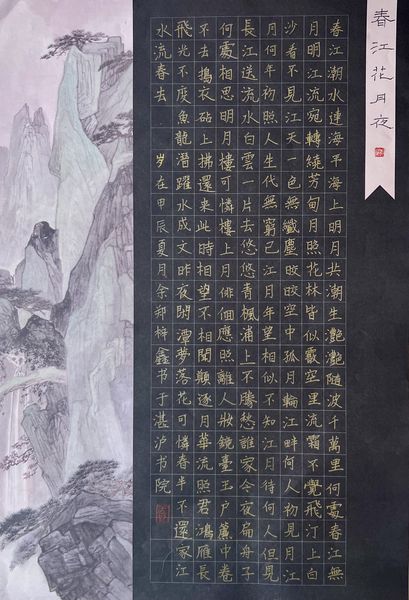 春江花月夜
春江潮水連海平海上明月共潮生灧灧隨波千萬里何處春江無
月明江流宛轉繞芳甸月照花林皆似霰空里流霜不覺飛汀上白
沙看不見江天一色無纖塵皎皎空中孤月輪江畔何人初見月江
月何年初照人生代無窮已江月年望相似不知江月待何人但見
長江送流水白雲一片去悠悠青楓浦上不勝愁誰家今夜扁舟子
何處相思明月樓可憐樓上月俳佪應照離人妝鏡臺玉户簾中卷
不去搗衣砧上拂還來此時相望不相聞願逐月華流照君鴻雁長
飛光不度魚龍潛躍水成文昨夜閑潭夢落花可憐春半不還家江
水流春去 岁在甲辰夏月余郑梓鑫书于湛泸书院